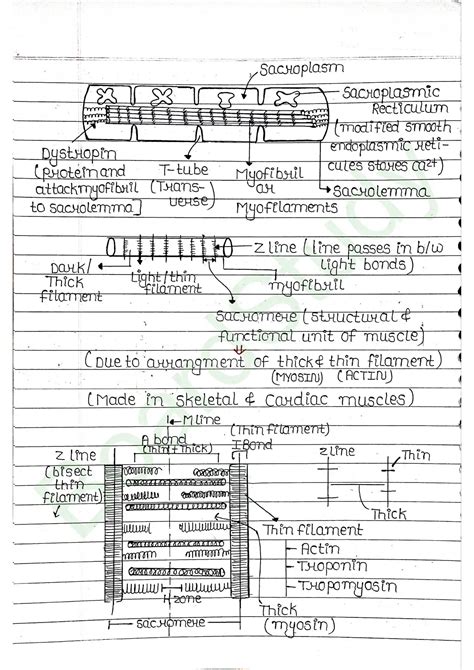 Sacroplasm
Sacroplasmic
Recticulum
(modified smooth
endoplasmic reti-
cules stares ca²⁺)
Sacrolemma
Dystropin
(protein and
attackmyofibril
to sacrolemma]
T-tube
(Trans-
verse)
Myofibril
or
Myofilaments
Z line ( line passes in b/w
light bonds)
myofibril
Dark/
Thick
filament
Light/thin
filament
Sacromere (structural &
functional unit of muscle)
(Due to arrangment of thick & thin filament)
(MYOSIN) (ACTIN)
(Made in skeletal & cardiac muscles)
M line
A bond
(Thin + Thick)
(Thin filament)
I Bond
Z line
(bisect
thin
filament)
Z line
Thin
Thick
Thin filament
Actin
Troponin
Tropomyosin
H zone
Thick
(myosin)
sacromere